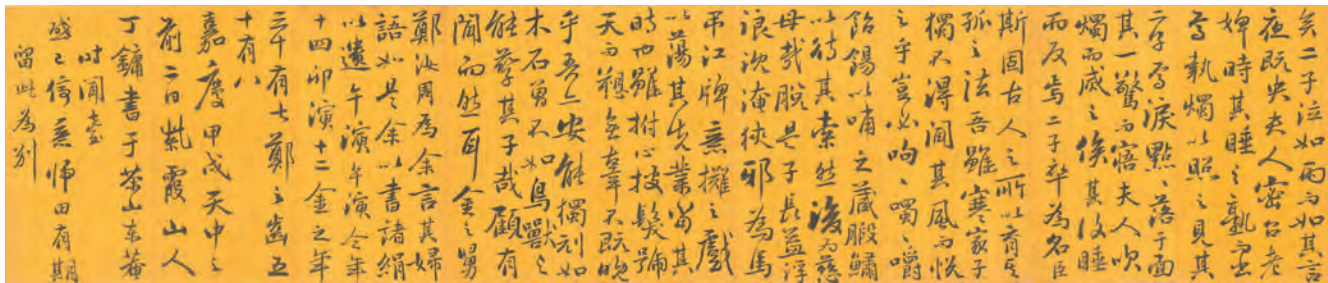 矣二子泣如雨而如其言
夜既央夫人密召老
婢時其睡之熟而
焉執燭以照之見其
二子焉淚點點落于面
其一驚而寤夫人吹
燭而滅之俟其復睡
而反焉二子卒爲名臣
斯固古人之所以育
孤之法吾雖寒家子
獨不得聞其風而悅
之乎豈必呴呴噣噣嚼
飴餳以哺之藏腶鱐
以待其索然後爲慈
母哉脫是子長益浮
浪沈淹狹邪爲馬
弔江牌意攤之戲
以蕩其先業當其
時也雖拊心拔髮號
天而籲無辜不旣晚
乎吾亦安能獨利如
木石曾不如鳥獸之
能孳其子哉顧有
聞而然耳金之舅
鄭汝周爲余言其婦
語如是余以書諸絹
以遺午演午演今年
十四卯演十二金之年
三十有七鄭之齒五
十有八
嘉慶甲戌天中之
前二日紫霞山人
丁鏞書于茶山東菴
時聞臺
啓已停意歸田有期
留此爲別